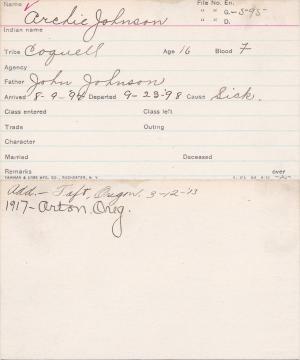 Name Archie Johnson File No. En.
" " G.-S-95-
" " D.
Indian name
Tribe Coquell Age 16 Blood F
Agency
Father John Johnson
Arrived 8-9-94 Departed 9-23-98 Cause Sick.
Class entered Class left
Trade Outing
Character
Married Deceased
Remarks over
Add.- Taft, Oregon. 3-12-'13
1917- Arton, Oreg.